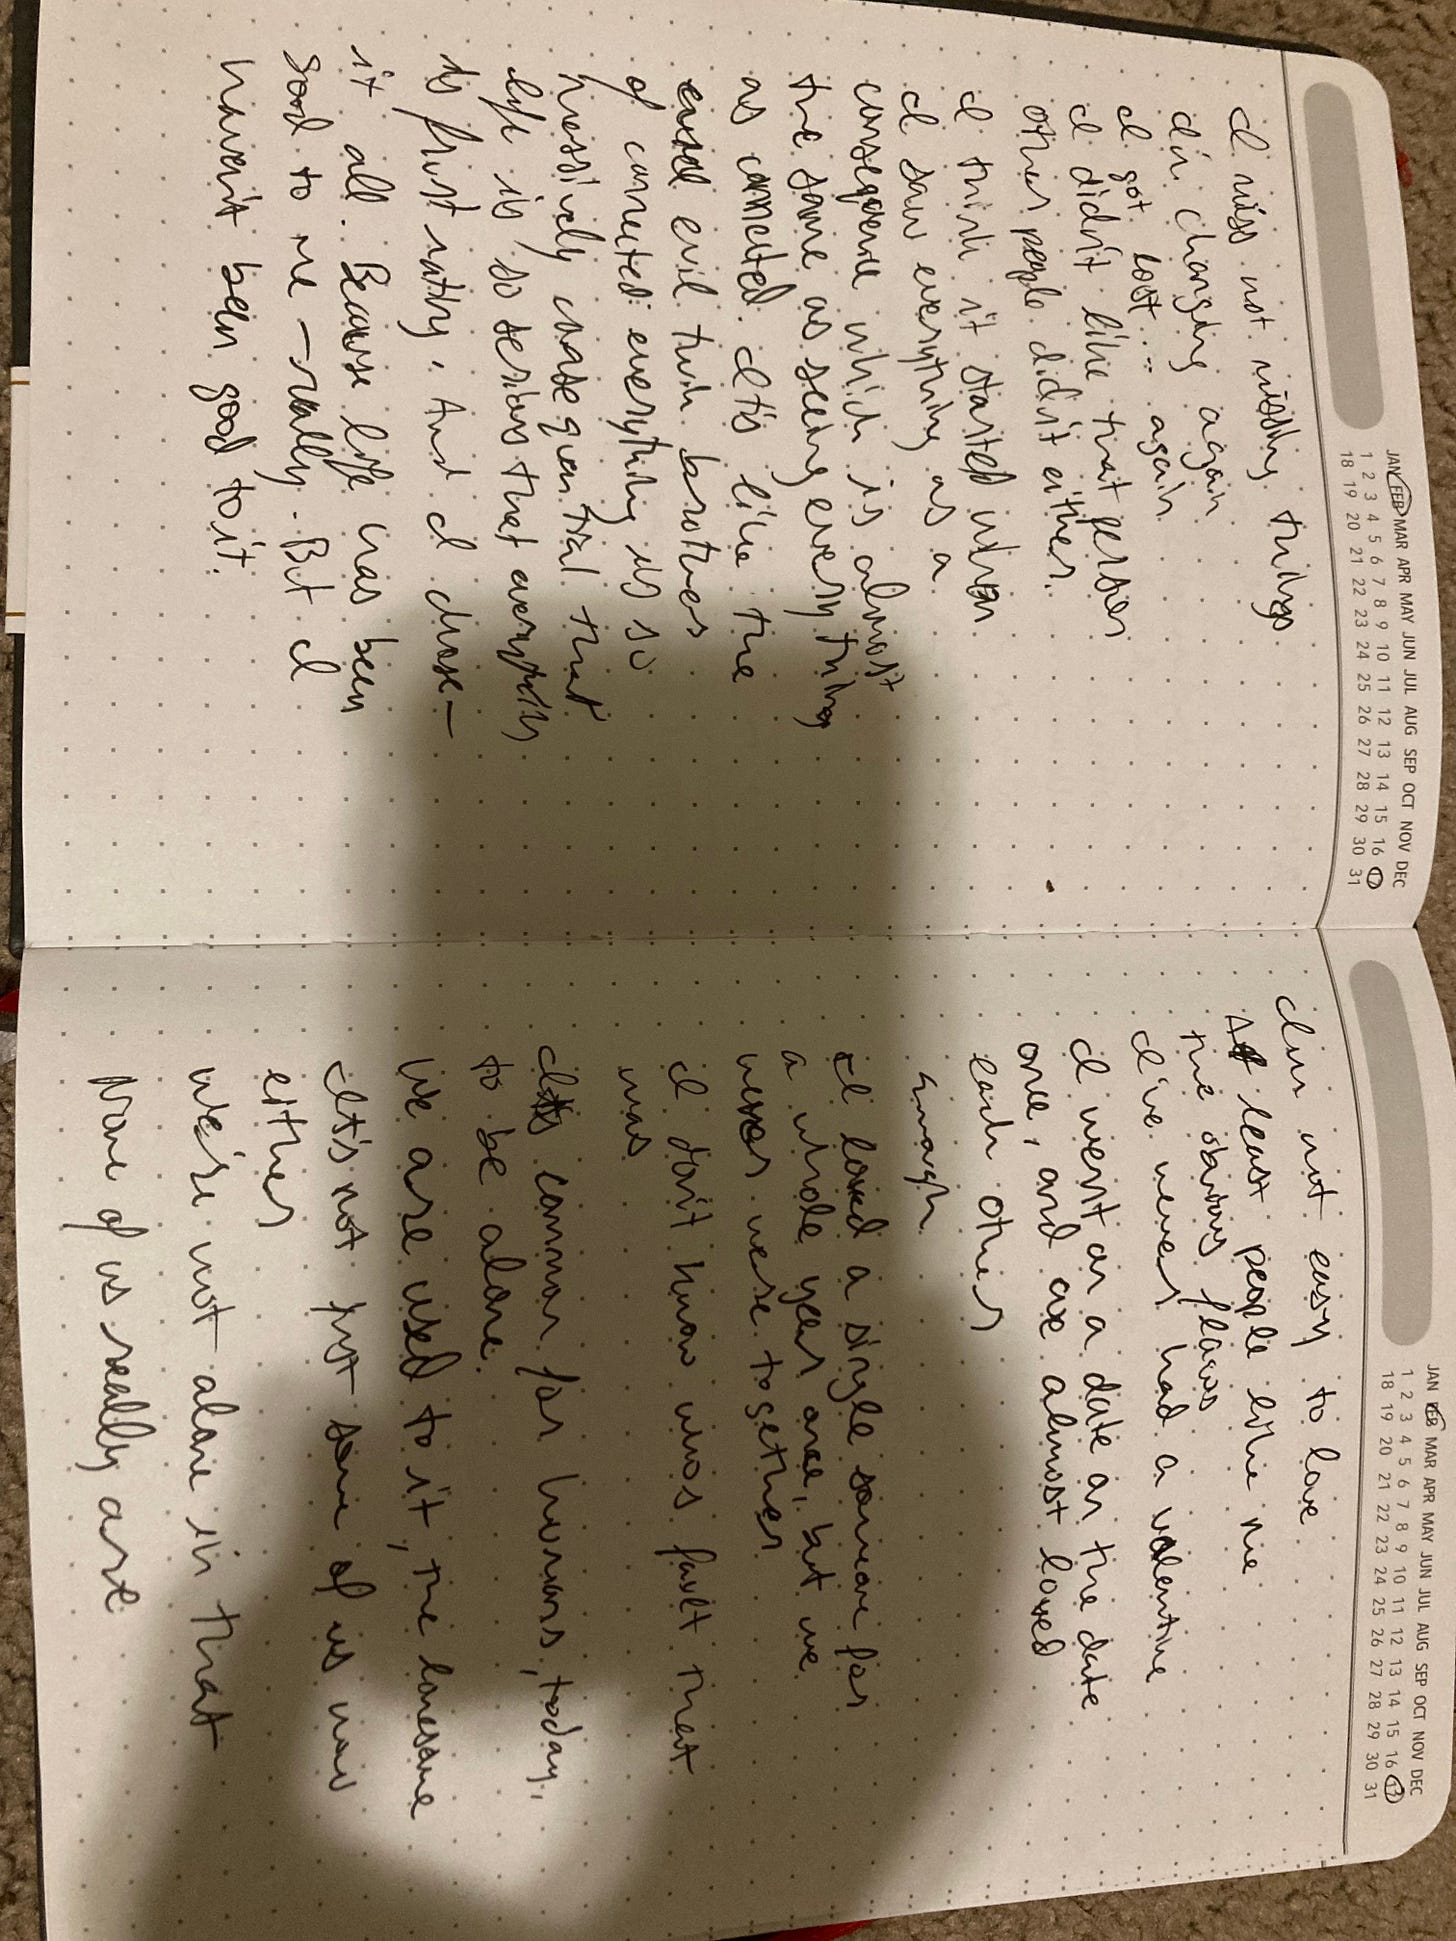 JAN FEB MAR APR MAY JUN JUL AUG SEP OCT NOV DEC
1 2 3 4 5 6 7 8 9 10 11 12 13 14 15 16 17
18 19 20 21 22 23 24 25 26 27 28 29 30 31
I miss not missing things
I'm changing again
I got lost... again
I didn't like that person
other people didn't either.
I think it started when
I saw everything as a
consequence which is almost
the same as seeing everything
as connected. It's like the
evil twin brother
of connected everything is so
consequential that
life is so serious that everything
is frustrating. And I chose—
it all. Because life has been
good to me — really. But I
haven't been good to it.
JAN FEB MAR APR MAY JUN JUL AUG SEP OCT NOV DEC
1 2 3 4 5 6 7 8 9 10 11 12 13 14 15 16 17
18 19 20 21 22 23 24 25 26 27 28 29 30 31
I'm not easy to love
At least people like me
the obvious flaws
I've never had a valentine
I went on a date on the date
once, and we almost loved
each other
enough
I loved a single someone for
a whole year once, but we
never were together
I don't know whos fault that
was
It's common for humans, today,
to be alone.
We are used to it, the lonesome
It's not just some of us now
either
We're not alone in that
None of us really are